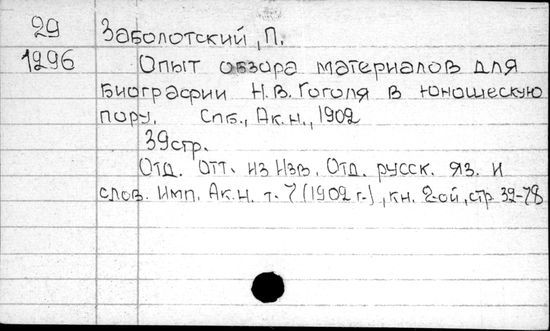 29 Заболотский, П.
1296 Опыт обзора материалов для
биографии Н.В. Гоголя в юношескую
пору. Спб., Ак.н., 1902
39стр.
Отд. отт. из Изв. Отд. русск. яз. и
слов. Имп. Ак.н. т. 7 (1902 г.), кн. 2-ой, стр 32-78